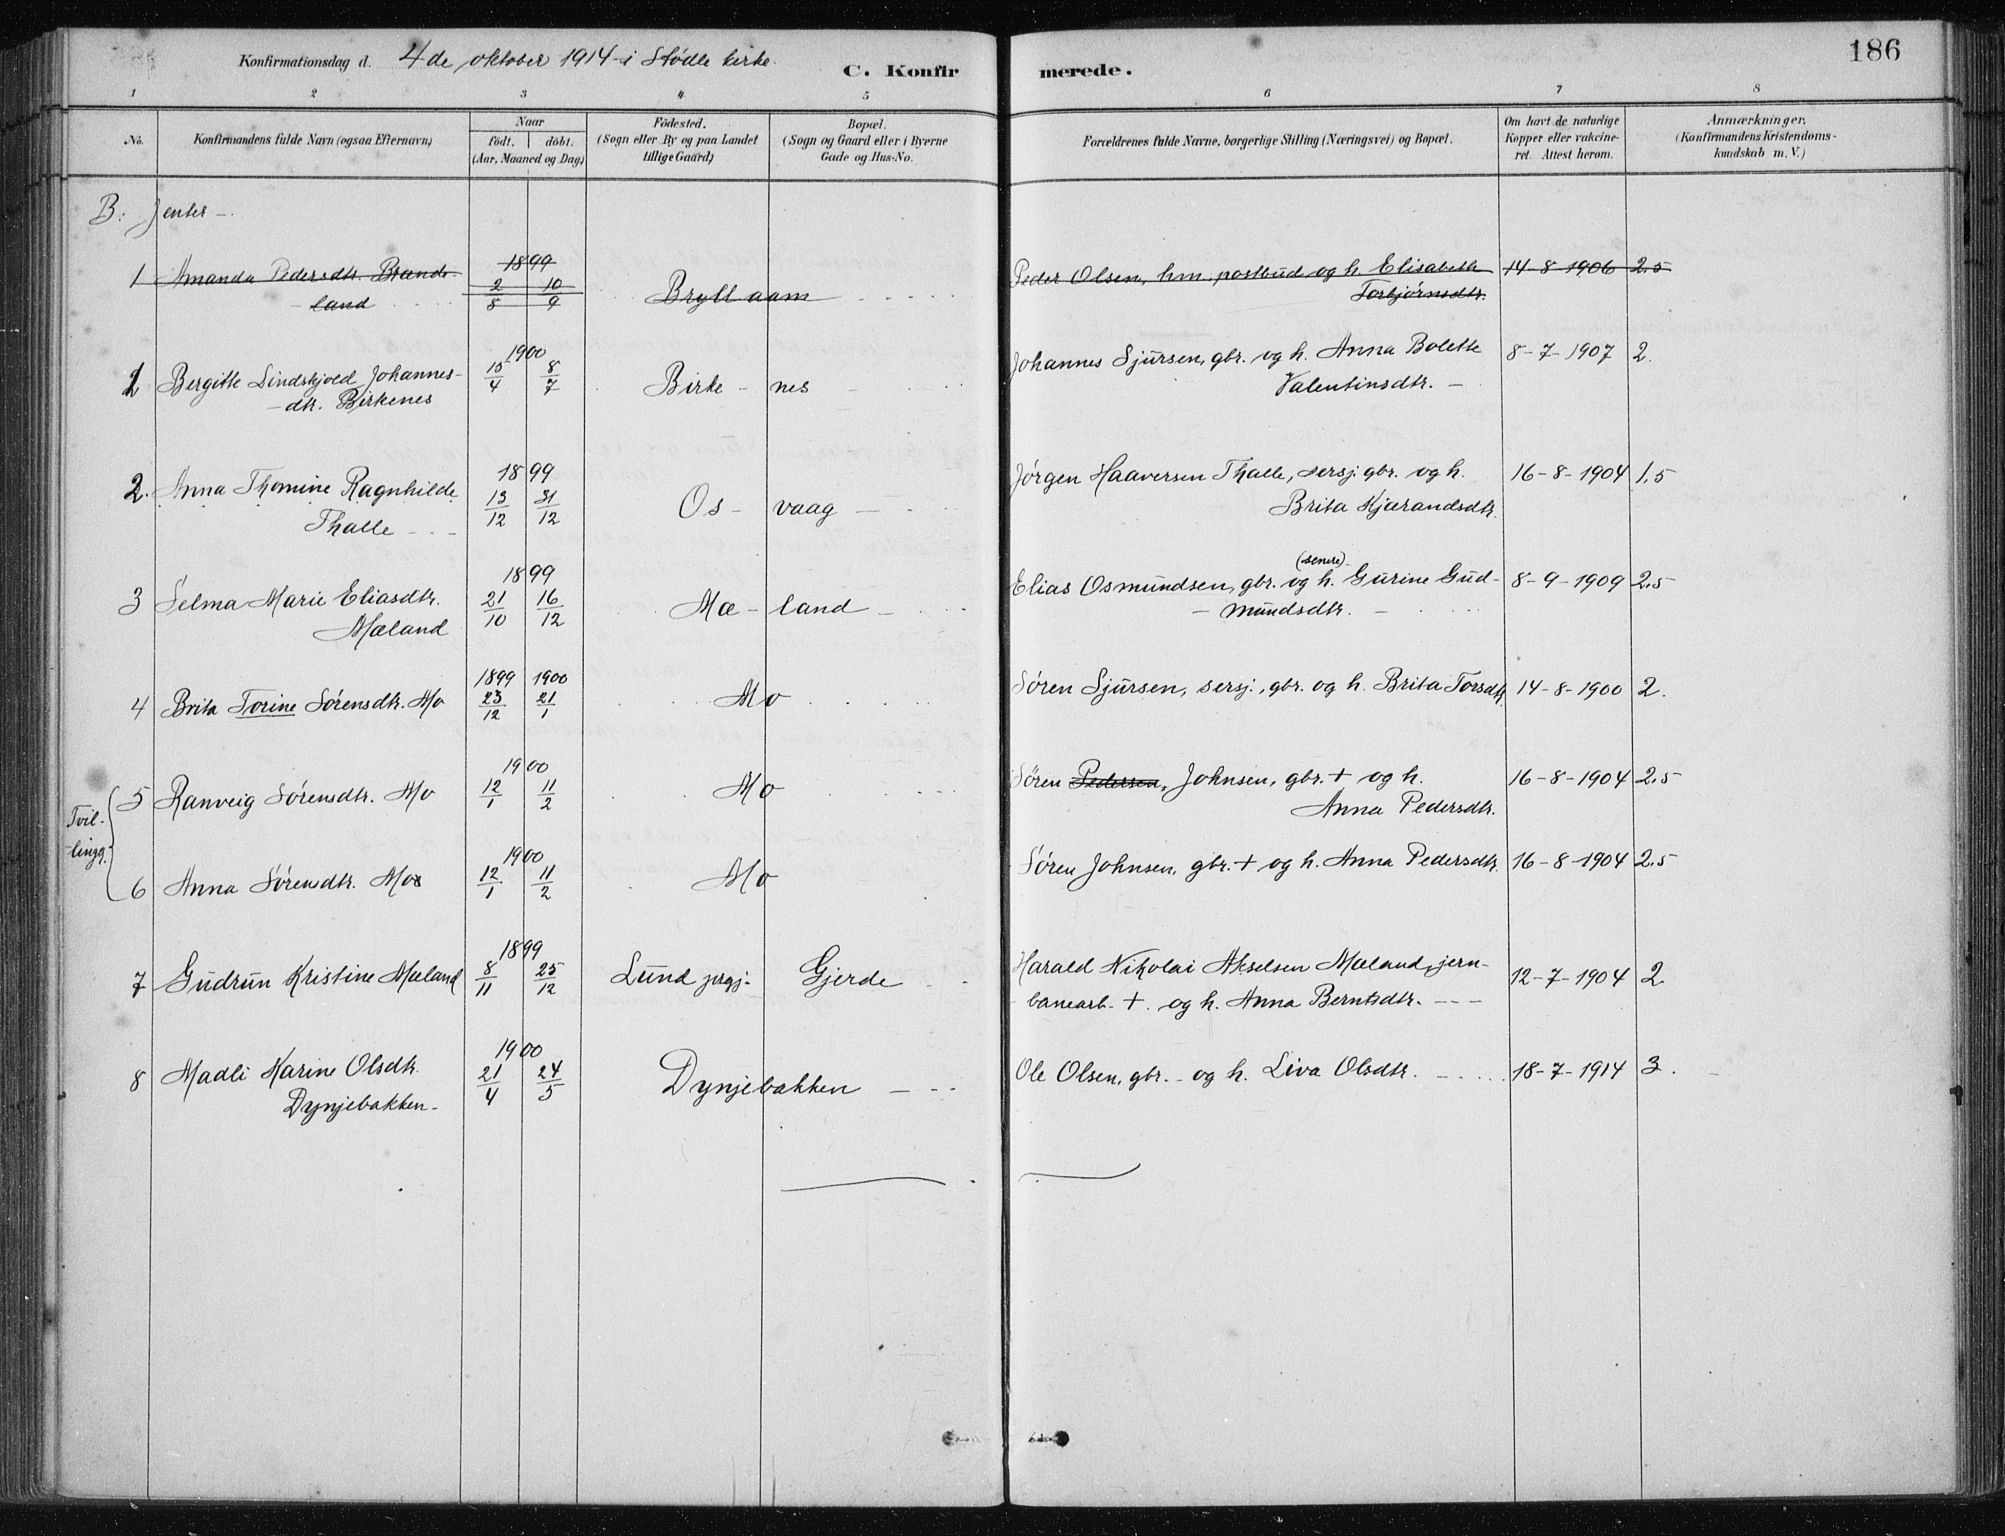 186
Konfirmationsdag d. 4de oktober 1914 i Stødle kirke.
C. Konfirmerede.
1 2 3 4 5 6 7 8
No.
Konfirmandens fulde Navn (ogsaa Efternavn)
Naar
födt. döbt.
(Aar, Maaned og Dag)
Födested.
(Sogn eller By og paa Landet
tillige Gaard)
Bopæl.
(Sogn og Gaard eller i Byerne
Gade og Hus-No.
Forældrenes fulde Navne, borgerlige Stilling (Næringsvei) og Bopæl.
Om havt de naturlige
Kopper eller vakcine-
ret. Attest herom.
Anmærkninger.
(Konfirmandens Kristendoms-
kundskab m. V.)
B. Jenter -
1 Amanda Pedersdtr. Brande-
land
1899 2/8 10/9
Bryllaam
Peder Olsen, hm, postbud og h. Elisabeth
Torbjørnsdtr.
14-8-1906 2.5
1 Bergitte Lindskjold Johannes-
dtr. Birkenes
1900 15/4 8/7
Birke - nes
Johannes Sjursen, gbr. og h. Anna Bolette
Valentinsdtr. -
8-7-1907 2.
2. Anna Thomine Ragnhilde
Thalle - -
1899 13/12 31/12
Os - vaag -
Jørgen Haaversen Thalle, sersj. gbr. og h.
Brita Kjærandsdtr.
16-8-1904 1.5
3 Selma Marie Eliasdtr.
Mæland
1899 21/10 16/12
Mæ - land -
(senere)
Elias Osmundsen, gbr. og h. Gurine Gud-
- mundsdtr. -
8-9-1909 2.5
4 Brita Torine Sørensdtr. Mo
1899 23/12 1900 21/1
Mo
Søren Sjursen, sersj., gbr. og h. Brita Torsdtr.
14-8-1900 2.
Tvil-
lingg.
5 Ranveig Sørensdtr. Mo
1900 12/1 11/2
Mo
Søren Pedersen, Johnsen, gbr. + og h.
Anna Pedersdtr.
16-8-1904 2.5
6 Anna Sørensdtr. Mo
1900 12/1 11/2
Mo
Søren Johnsen, gbr. + og h. Anna Pedersdtr.
16-8-1904 2.5
7 Gudrun Kristine Mæland
1899 8/11 25/12
Lund prgj. Gjerde
Harald Nikolai Akselsen Mæland, jern-
banearb. + og h. Anna Berntsdtr. ---
12-7-1904 2
8 Madli Karine Olsdtr.
Dynjebakken -
1900 21/4 24/5
Dynjebakken -
Ole Olsen, gbr. - og h. Liva Olsdtr.
18-7-1914 3.